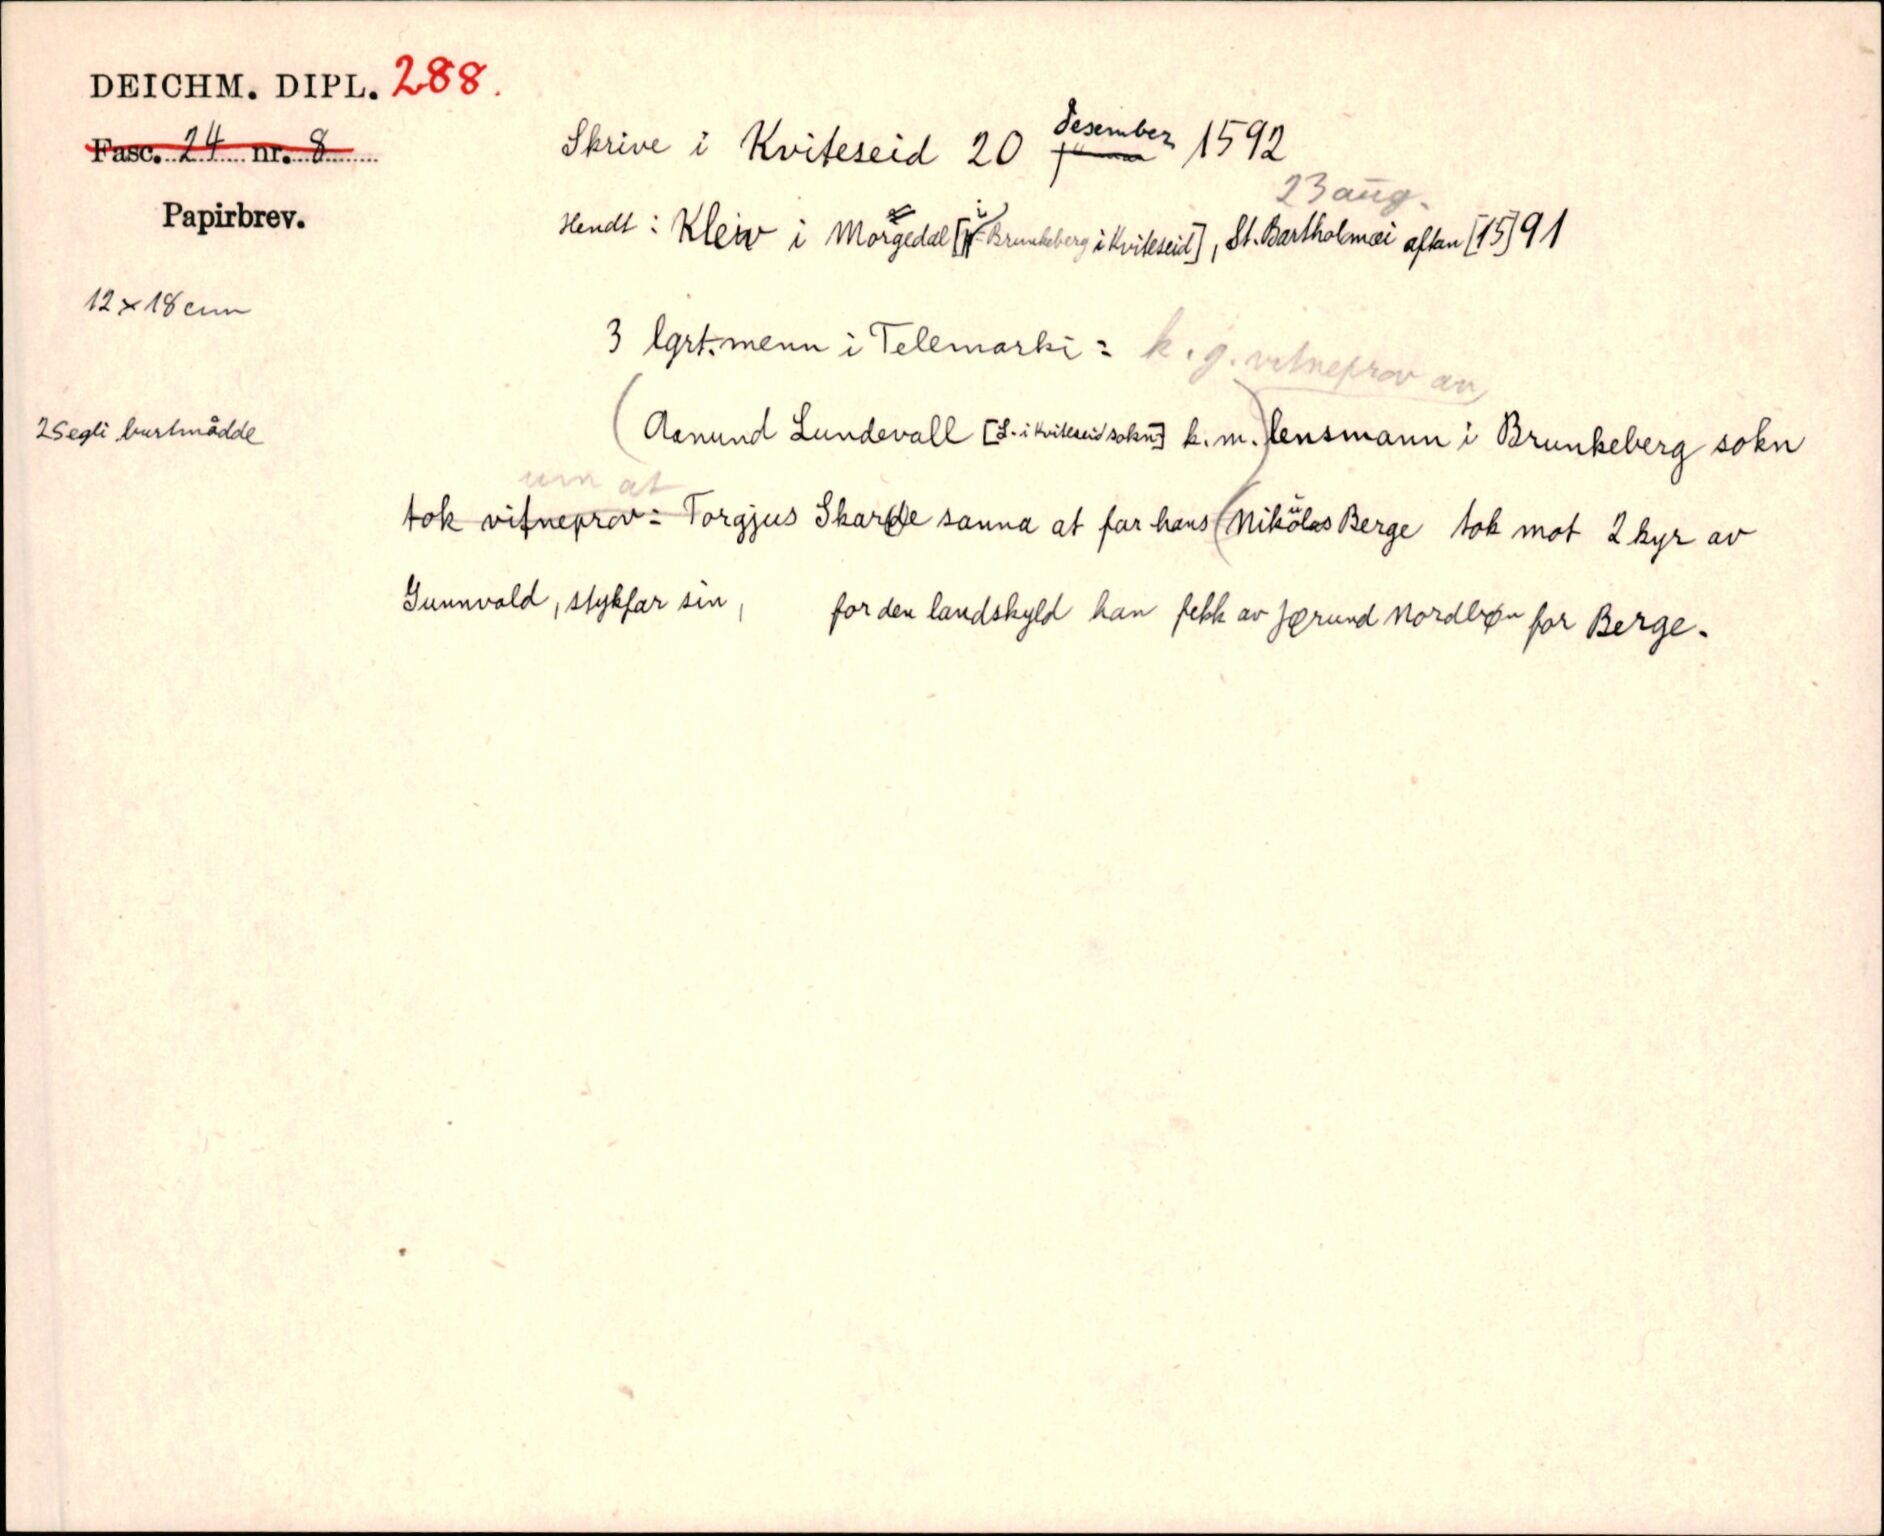 DEICHM. DIPL. 288.
Fasc. 24 nr. 8
Papirbrev.
12 × 18 cm
2 segli burtmådde
Skrive i Kviteseid 20 desember 1592
23 aug.
Hendt: Kleiv i Morgedal [i Brunkeberg i Kviteseid], St. Bartholmæi aftan [15]91
3 lgrt.menn i Telemarki: k.g. vitneprov av
(Aanund Lundevall [L. i Kviteseid sokn] k.m.) lensmann i Brunkeberg sokn
um at
tok vitneprov: Torgjus Skarde sanna at far hans (Nikolas Berge tok mot 2 kyr av
Gunnvald, stykfar sin, for den landskyld han fekk av Jørund Nordbøn for Berge.